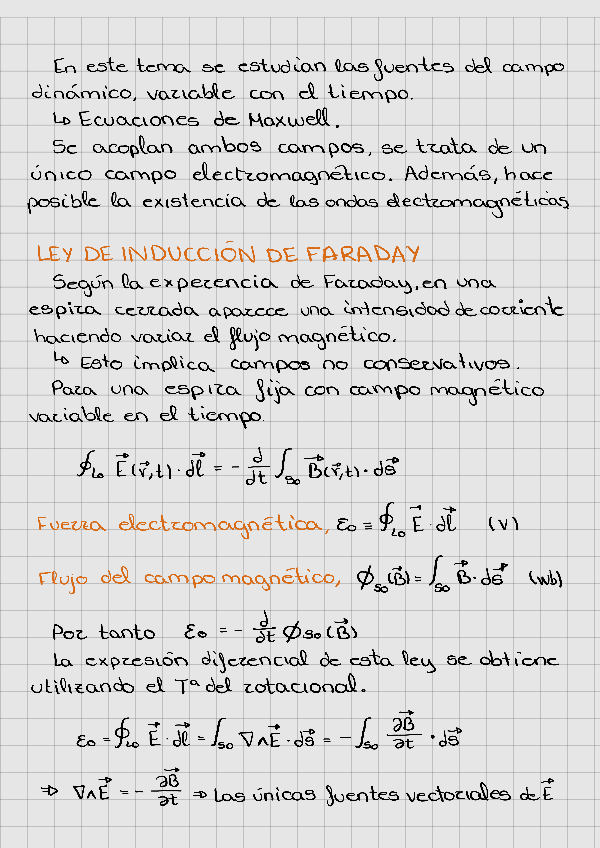 En este tema se estudian las fuentes del campo
dinámico, variable con el tiempo.
↳ Ecuaciones de Maxwell.
Se acoplan ambos campos, se trata de un
único campo electromagnético. Además, hace
posible la existencia de las ondas electromagnéticas
LEY DE INDUCCIÓN DE FARADAY
Según la experencia de Faraday, en una
espira cerrada aparece una intensidad de corriente
haciendo variar el flujo magnético.
↳ Esto implica campos no conservativos.
Para una espira fija con campo magnético
variable en el tiempo.
∮_{L0} E⃗(r⃗,t)·dl⃗ = - d/dt ∫_{S0} B⃗(r⃗,t)·ds⃗
Fuerza electromagnética, ε0 ≡ ∮_{L0} E⃗·dl⃗ (V)
Flujo del campo magnético, ϕ_{S0}(B⃗) = ∫_{S0} B⃗·ds⃗ (Wb)
Por tanto ε0 = - d/dt ϕ_{S0}(B⃗)
La expresión diferencial de esta ley se obtiene
utilizando el Tª del rotacional.
ε0 = ∮_{L0} E⃗·dl⃗ = ∫_{S0} ∇∧E⃗·ds⃗ = - ∫_{S0} ∂B⃗/∂t · ds⃗
⇒ ∇∧E⃗ = - ∂B⃗/∂t ⇒ Las únicas fuentes vectoriales de E⃗